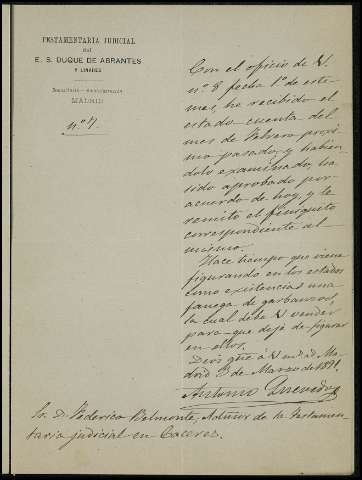 TESTAMENTARIA JUDICIAL
del
E. S. DUQUE DE ABRANTES
Y LINARES
MADRID
nº 7.
Con el oficio de V.
nº 8 fecha 1º de este
mes, he recibido el
estado cuenta del
mes de Febrero proxi
mo pasado, y habien
dolo examinado, ha
sido aprobado por
acuerdo de hoy, y le
remito el finiquito
correspondiente al
mismo.
Hace tiempo que viene
figurando en los estados
como existencias una
fanega de garbanzos,
la cual debe V. vender
para que deje de figurar
en ellos.
Dios gue á V. m. a. Ma
drid 3 de Marzo de 1891.
Antonio Quevedo
Sr. D. Federico Belmonte, Admor de la Testamen
taria judicial en Caceres.